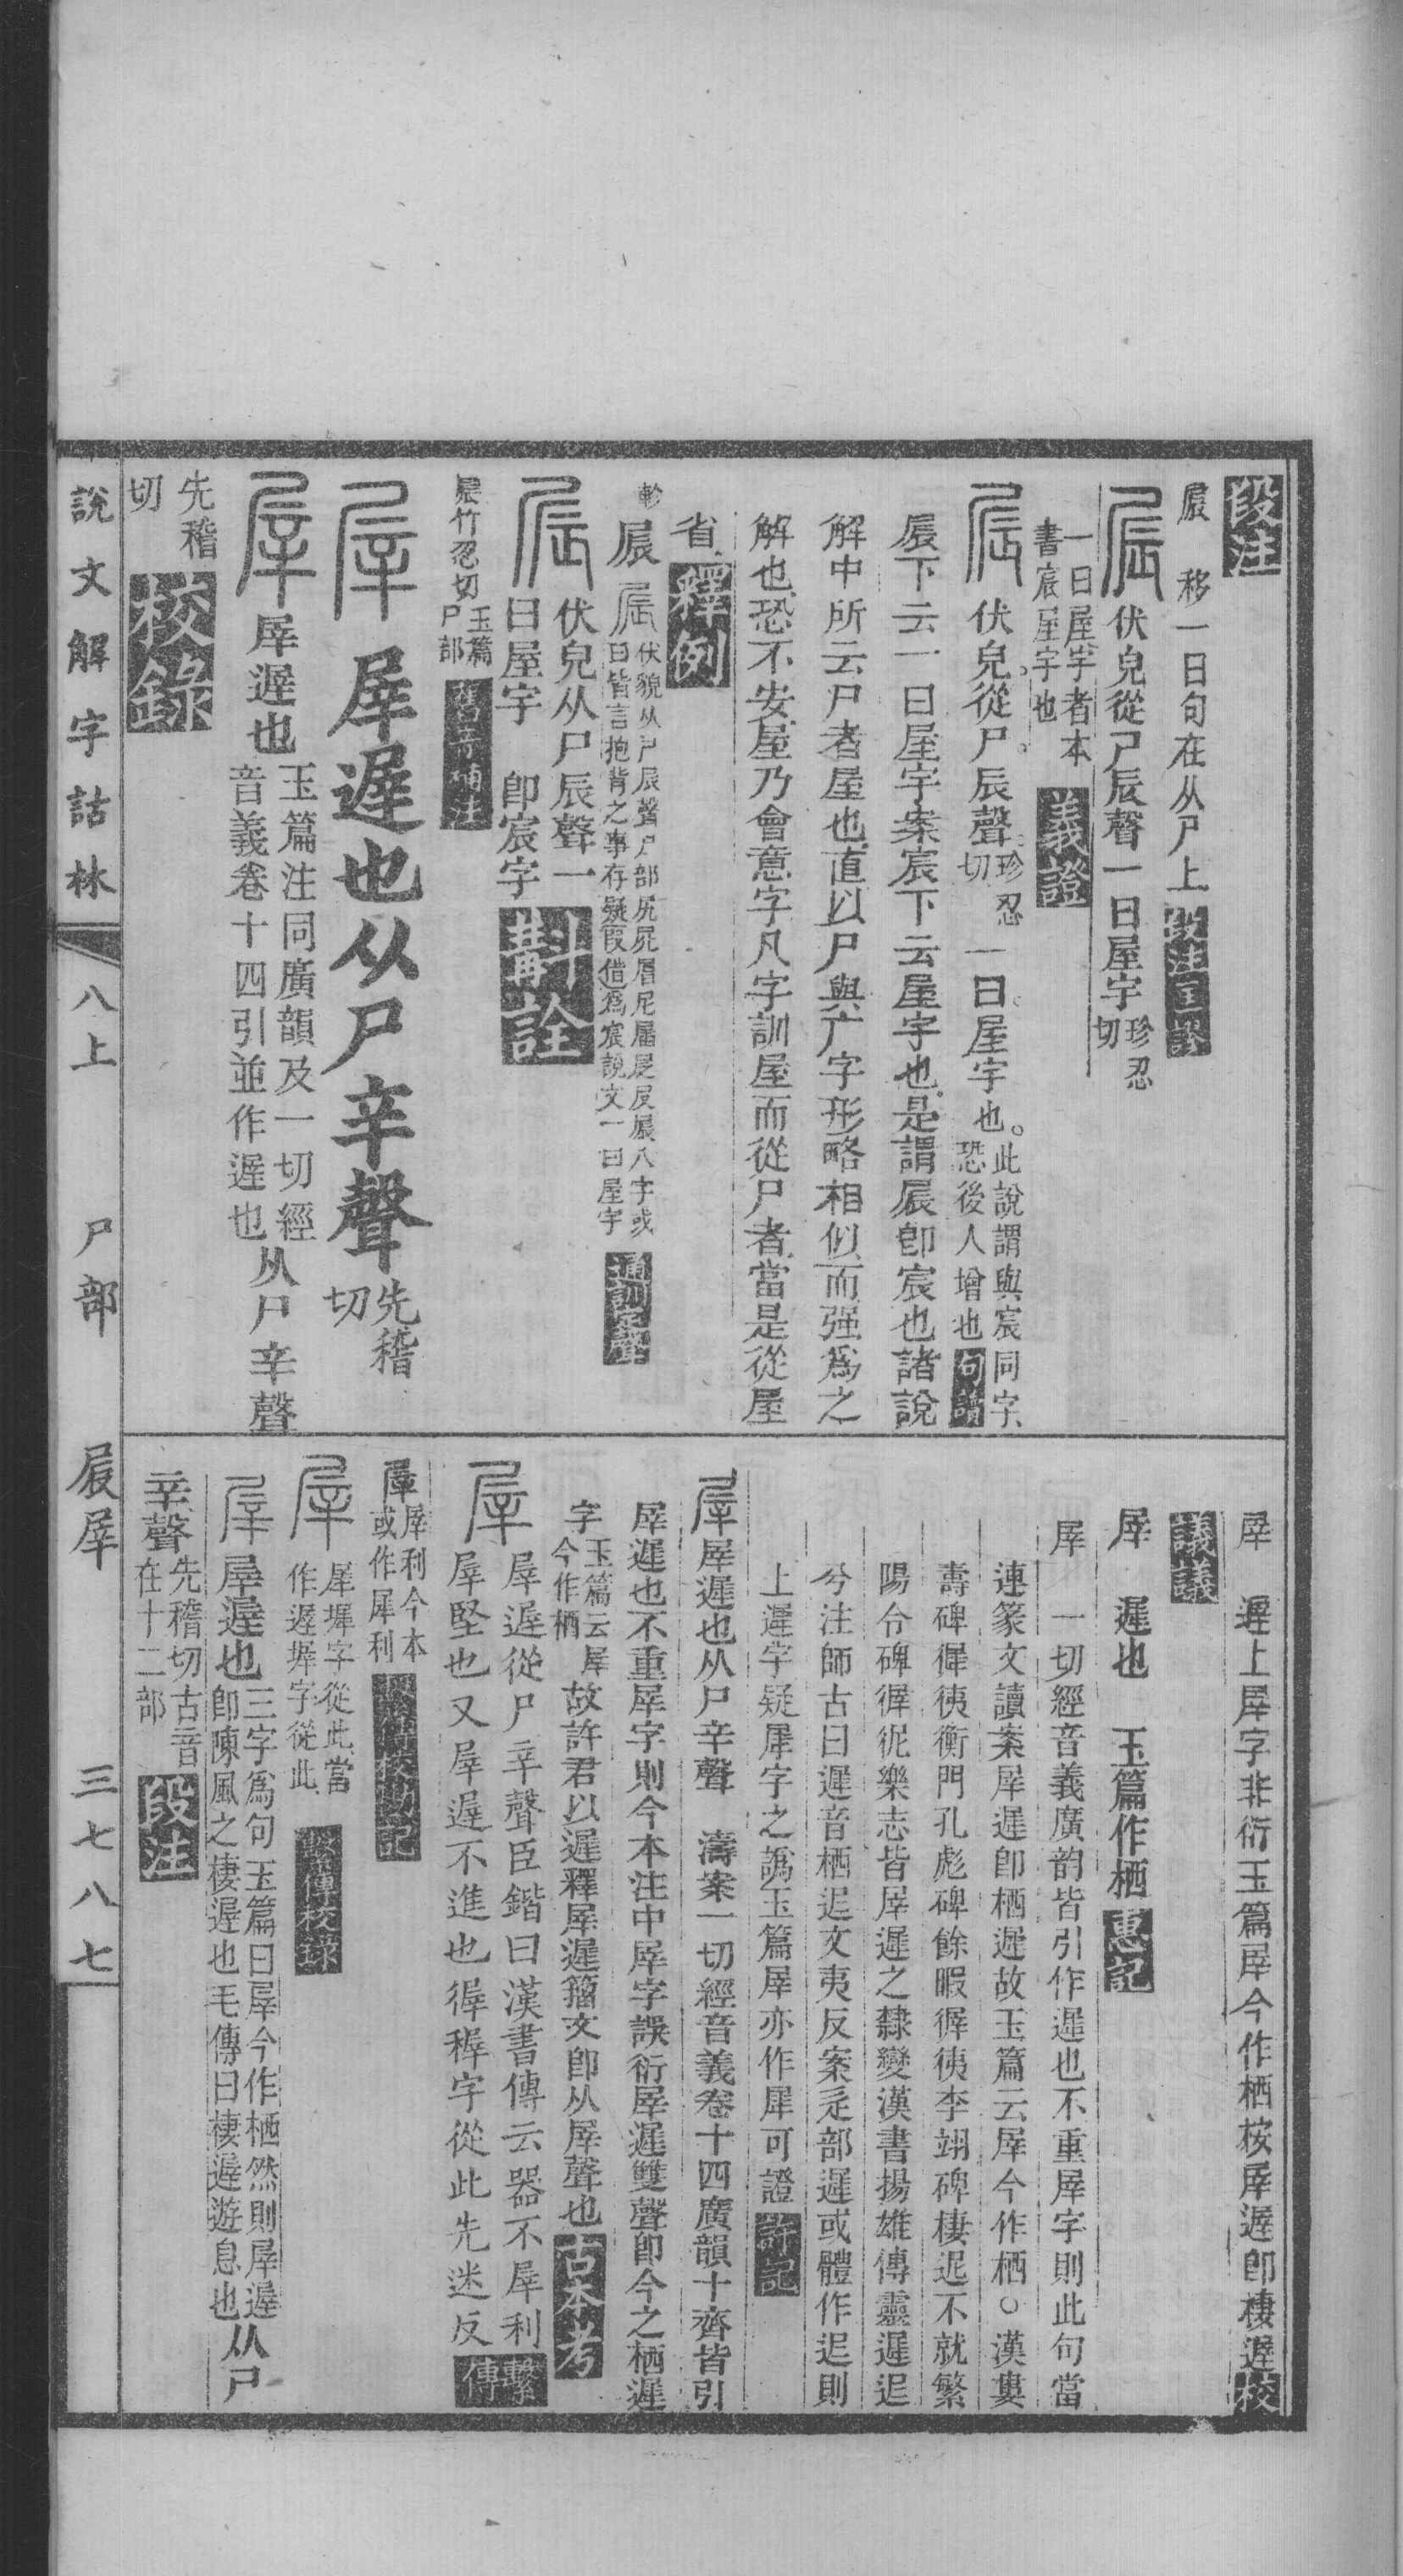 段注
㞡　移一曰句在从尸上　段注匡謬
㞡　伏皃從尸辰聲一曰屋宇　珍忍切
一曰屋宇者本書宸屋宇也　義證
㞡　伏皃。從尸。辰聲。珍忍切　一曰。屋宇也。此說謂與宸同字、恐後人增也　句讀
㞡下云一曰屋宇案宸下云屋宇也是謂㞡卽宸也諸說
解中所云尸者屋也直以尸與广字形略相似而强爲之
解也恐不安屋乃會意字凡字訓屋而從尸者當是從屋
省　釋例
軫　㞡　伏貌从尸辰聲尸部尻屍眉尼屆㞋㞡八字或曰皆言抱背之事存疑叚借爲宸說文一曰屋宇　通訓定聲
伏皃从尸辰聲一曰屋宇　卽宸字　斠詮
㞡竹忍切　玉篇尸部
屖　屖遟也从尸辛聲　先稽切
屖　屖遟也　玉篇注同廣韻及一切經音義卷十四引並作遟也　从尸辛聲
先稽切　校錄
屖　遟上屖字非衍玉篇屖今作栖桉屖遟卽棲遟　校
議議
屖　遟也　玉篇作栖　惠記
屖　一切經音義廣韵皆引作遟也不重屖字則此句當
連篆文讀案屖遟卽栖遟故玉篇云屖今作栖○漢婁
壽碑徲㣢衡門孔彪碑餘暇徲㣢李翊碑棲迡不就繁
陽令碑徲㣇樂志皆屖遟之隸變漢書揚雄傳靈遟迡
兮注師古曰遟音栖迡文夷反案辵部遟或體作迡則
上遟字疑犀字之譌玉篇屖亦作犀可證　許記
屖　屖遟也从尸辛聲　濤案一切經音義卷十四廣韻十齊皆引
屖遟也不重屖字則今本注中屖字誤衍屖遟雙聲卽今之栖遟
字　玉篇云屖今作栖　故許君以遟釋屖遟籀文卽从屖聲也　古本考
屖　屖遟從尸辛聲臣鍇曰漢書傳云器不屖利
屖堅也又屖遟不進也徲稺字從此先迷反　繫傳
屖　屖利今本或作犀利　繫傳校勘記
屖　犀墀字從此當作遟墀字從此　繫傳校錄
屖　屖遟也　三字爲句玉篇曰屖今作栖然則屖遟卽陳風之棲遟也毛傳曰棲遟遊息也　从尸
辛聲　先稽切古音在十二部　段注
說文解字詁林　八上　尸部　㞡屖　三七八七